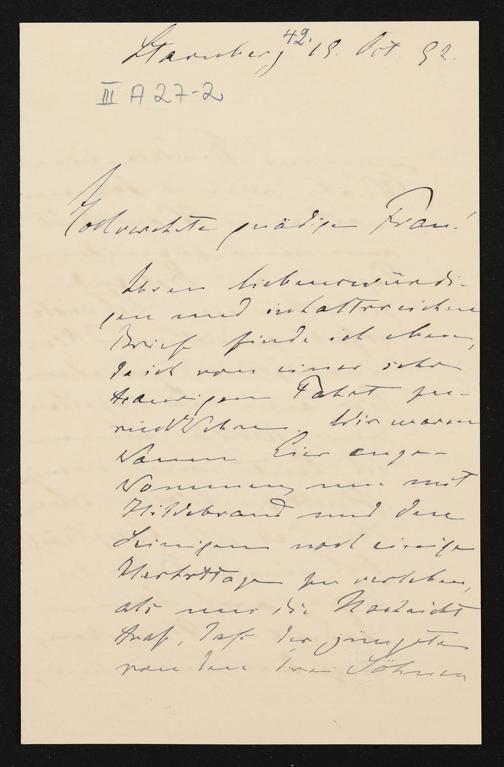 42.
Starnberg 18. Oct. 92.
III A 27-2
Hochverehrte gnädige Frau!
Ihren liebenswürdi-
gen und inhaltreichen
Brief finde ich eben,
da ich von einer sehr
traurigen Fahrt zu-
rückkehre. Wir waren
kaum hier ange-
kommen, um mit
Hildebrand und den
Seinigen noch einige
Herbsttage zu verleben,
als uns die Nachricht
traf, daß der jüngste
von den drei Söhnen